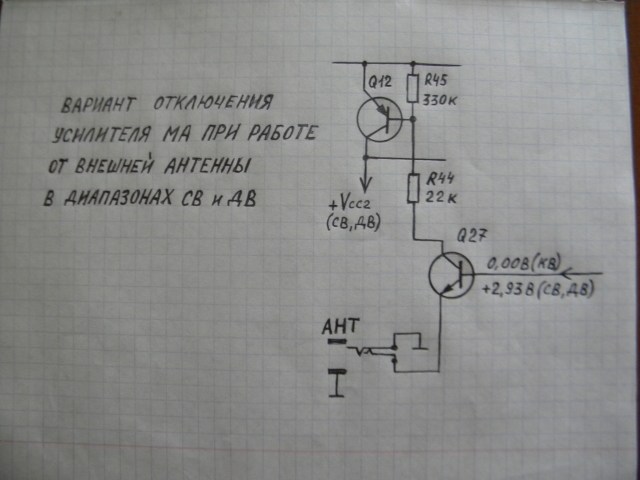 ВАРИАНТ ОТКЛЮЧЕНИЯ
УСИЛИТЕЛЯ МА ПРИ РАБОТЕ
ОТ ВНЕШНЕЙ АНТЕННЫ
В ДИАПАЗОНАХ СВ и ДВ
Q12
R45
330К
R44
22К
+Vcc2
(СВ, ДВ)
Q27
0,00В(КВ)
+2,93В(СВ,ДВ)
АНТ